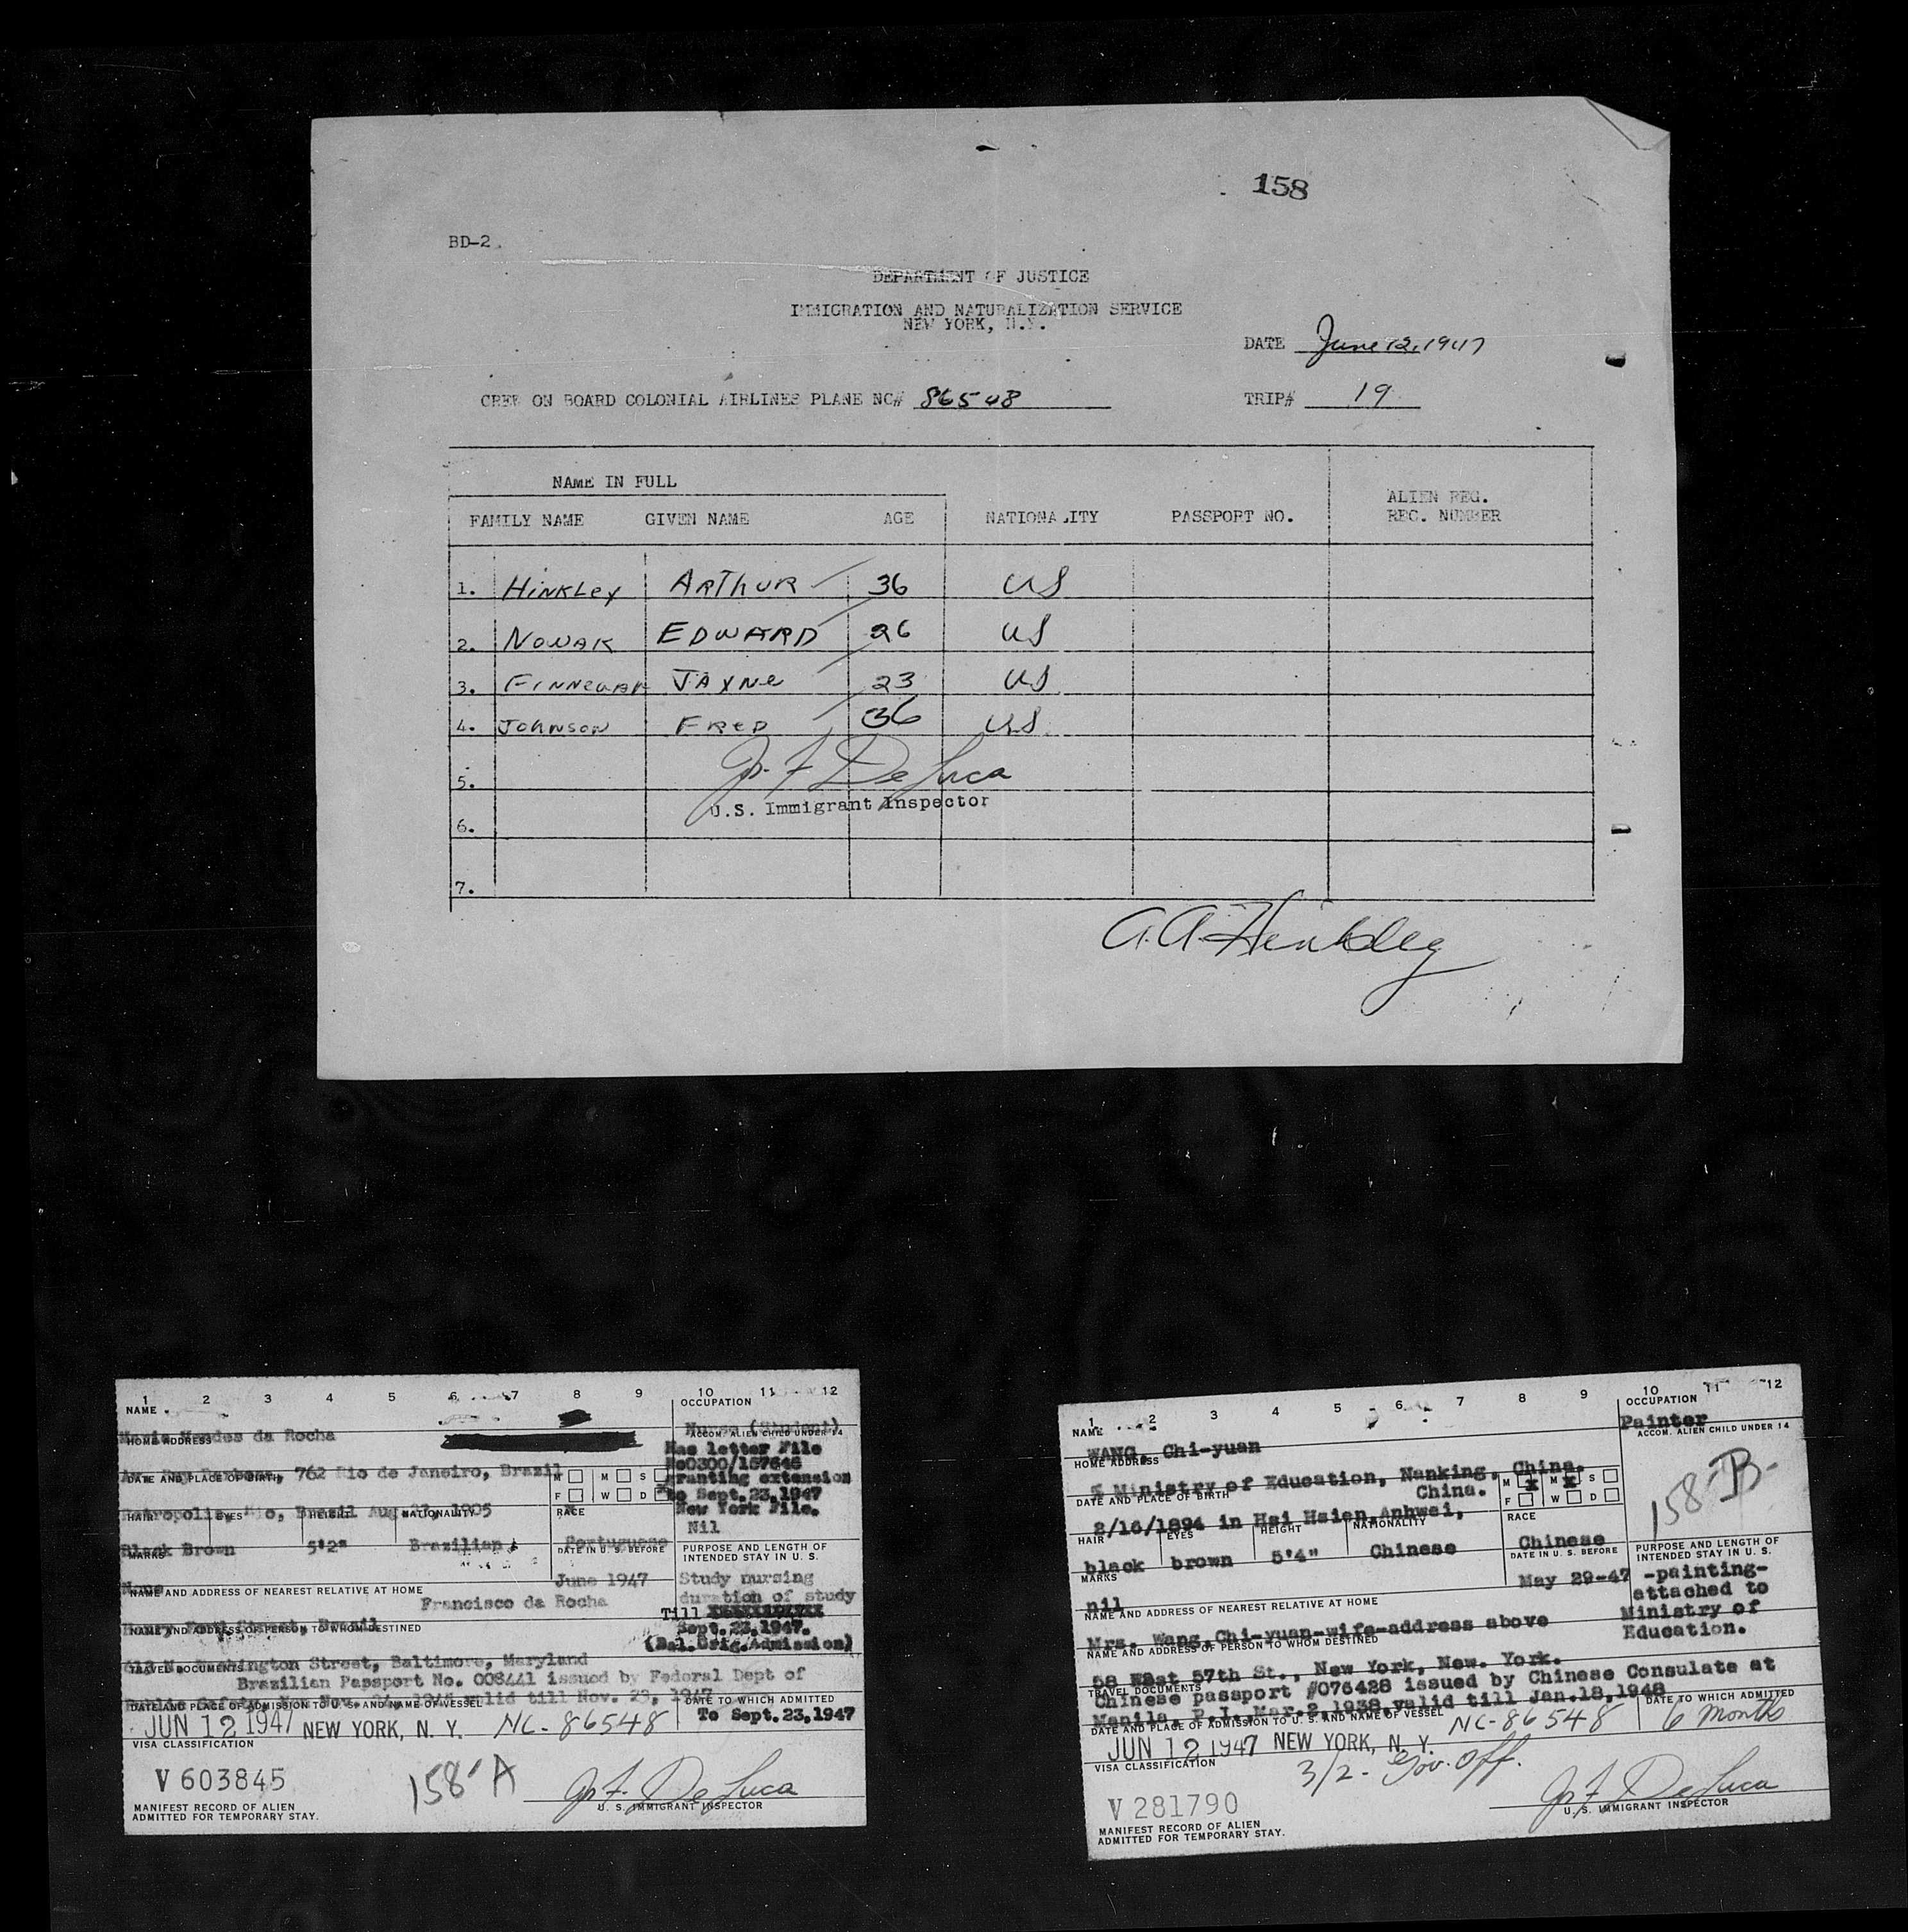 158
BD-2
DEPARTMENT OF JUSTICE
IMMIGRATION AND NATURALIZATION SERVICE
NEW YORK, N.Y.
DATE June 12, 1947
CREW ON BOARD COLONIAL AIRLINES PLANE NC# 86548 TRIP# 19
NAME IN FULL
FAMILY NAME GIVEN NAME AGE NATIONALITY PASSPORT NO. ALIEN REG. REC. NUMBER
1. HINKLEY ARTHUR 36 US
2. NOWAK EDWARD 26 US
3. FINNEGAN JAYNE 23 US
4. JOHNSON FRED 36 US
5.
De Luca
U.S. Immigrant Inspector
6.
7.
A.A. Hinkley
1 2 3 4 5 6 7 8 9 10 11 12
NAME OCCUPATION
Mendes da Rocha Nurse (Student)
HOME ADDRESS ACCOM. ALIEN CHILD UNDER 14
Has letter File
0300/167646
762 Rio de Janeiro, Brazil granting extension
DATE AND PLACE OF BIRTH M M S
to Sept.23,1947
F W D
Petropolis, Rio, Brazil Aug 1905 New York File.
HAIR EYES HEIGHT NATIONALITY RACE
Nil
Black Brown 5'2" Brazilian Portuguese
MARKS DATE IN U.S. BEFORE PURPOSE AND LENGTH OF INTENDED STAY IN U. S.
None June 1947 Study nursing
NAME AND ADDRESS OF NEAREST RELATIVE AT HOME duration of study
Francisco da Rocha Till
Street, Brazil Sept.23,1947.
NAME AND ADDRESS OF PERSON TO WHOM DESTINED (Bal.Orig.Admission)
Street, Baltimore, Maryland
TRAVEL DOCUMENTS
Brazilian Passport No. 008441 issued by Federal Dept of
valid till Nov.
DATE AND PLACE OF ADMISSION TO U. S. AND NAME OF VESSEL DATE TO WHICH ADMITTED
JUN 12 1947 NEW YORK, N. Y. NC-86548 To Sept.23,1947
VISA CLASSIFICATION
V 603845 158-A De Luca
U. S. IMMIGRANT INSPECTOR
MANIFEST RECORD OF ALIEN
ADMITTED FOR TEMPORARY STAY.
1 2 3 4 5 6 7 8 9 10 11 12
NAME OCCUPATION
WANG, Chi-yuan Painter
HOME ADDRESS ACCOM. ALIEN CHILD UNDER 14
% Ministry of Education, Nanking, China.
China.
DATE AND PLACE OF BIRTH M x M x S
F W D
158-B-
2/16/1894 in Hsi Hsien, Anhwei,
HAIR EYES HEIGHT NATIONALITY RACE
black brown 5'4" Chinese Chinese
MARKS DATE IN U.S. BEFORE PURPOSE AND LENGTH OF INTENDED STAY IN U. S.
nil May 29-47 -painting-
attached to
NAME AND ADDRESS OF NEAREST RELATIVE AT HOME Ministry of
Mrs. Wang, Chi-yuan-wife-address above Education.
NAME AND ADDRESS OF PERSON TO WHOM DESTINED
58 West 57th St., New York, New. York.
TRAVEL DOCUMENTS
Chinese passport #076428 issued by Chinese Consulate at
Manila, P.I., Mar.2,1938,valid till Jan.18,1948
DATE AND PLACE OF ADMISSION TO U. S. AND NAME OF VESSEL DATE TO WHICH ADMITTED
JUN 12 1947 NEW YORK, N. Y. NC-86548 6 Months
VISA CLASSIFICATION 3/2- Gov. Off.
V 281790 De Luca
U. S. IMMIGRANT INSPECTOR
MANIFEST RECORD OF ALIEN
ADMITTED FOR TEMPORARY STAY.